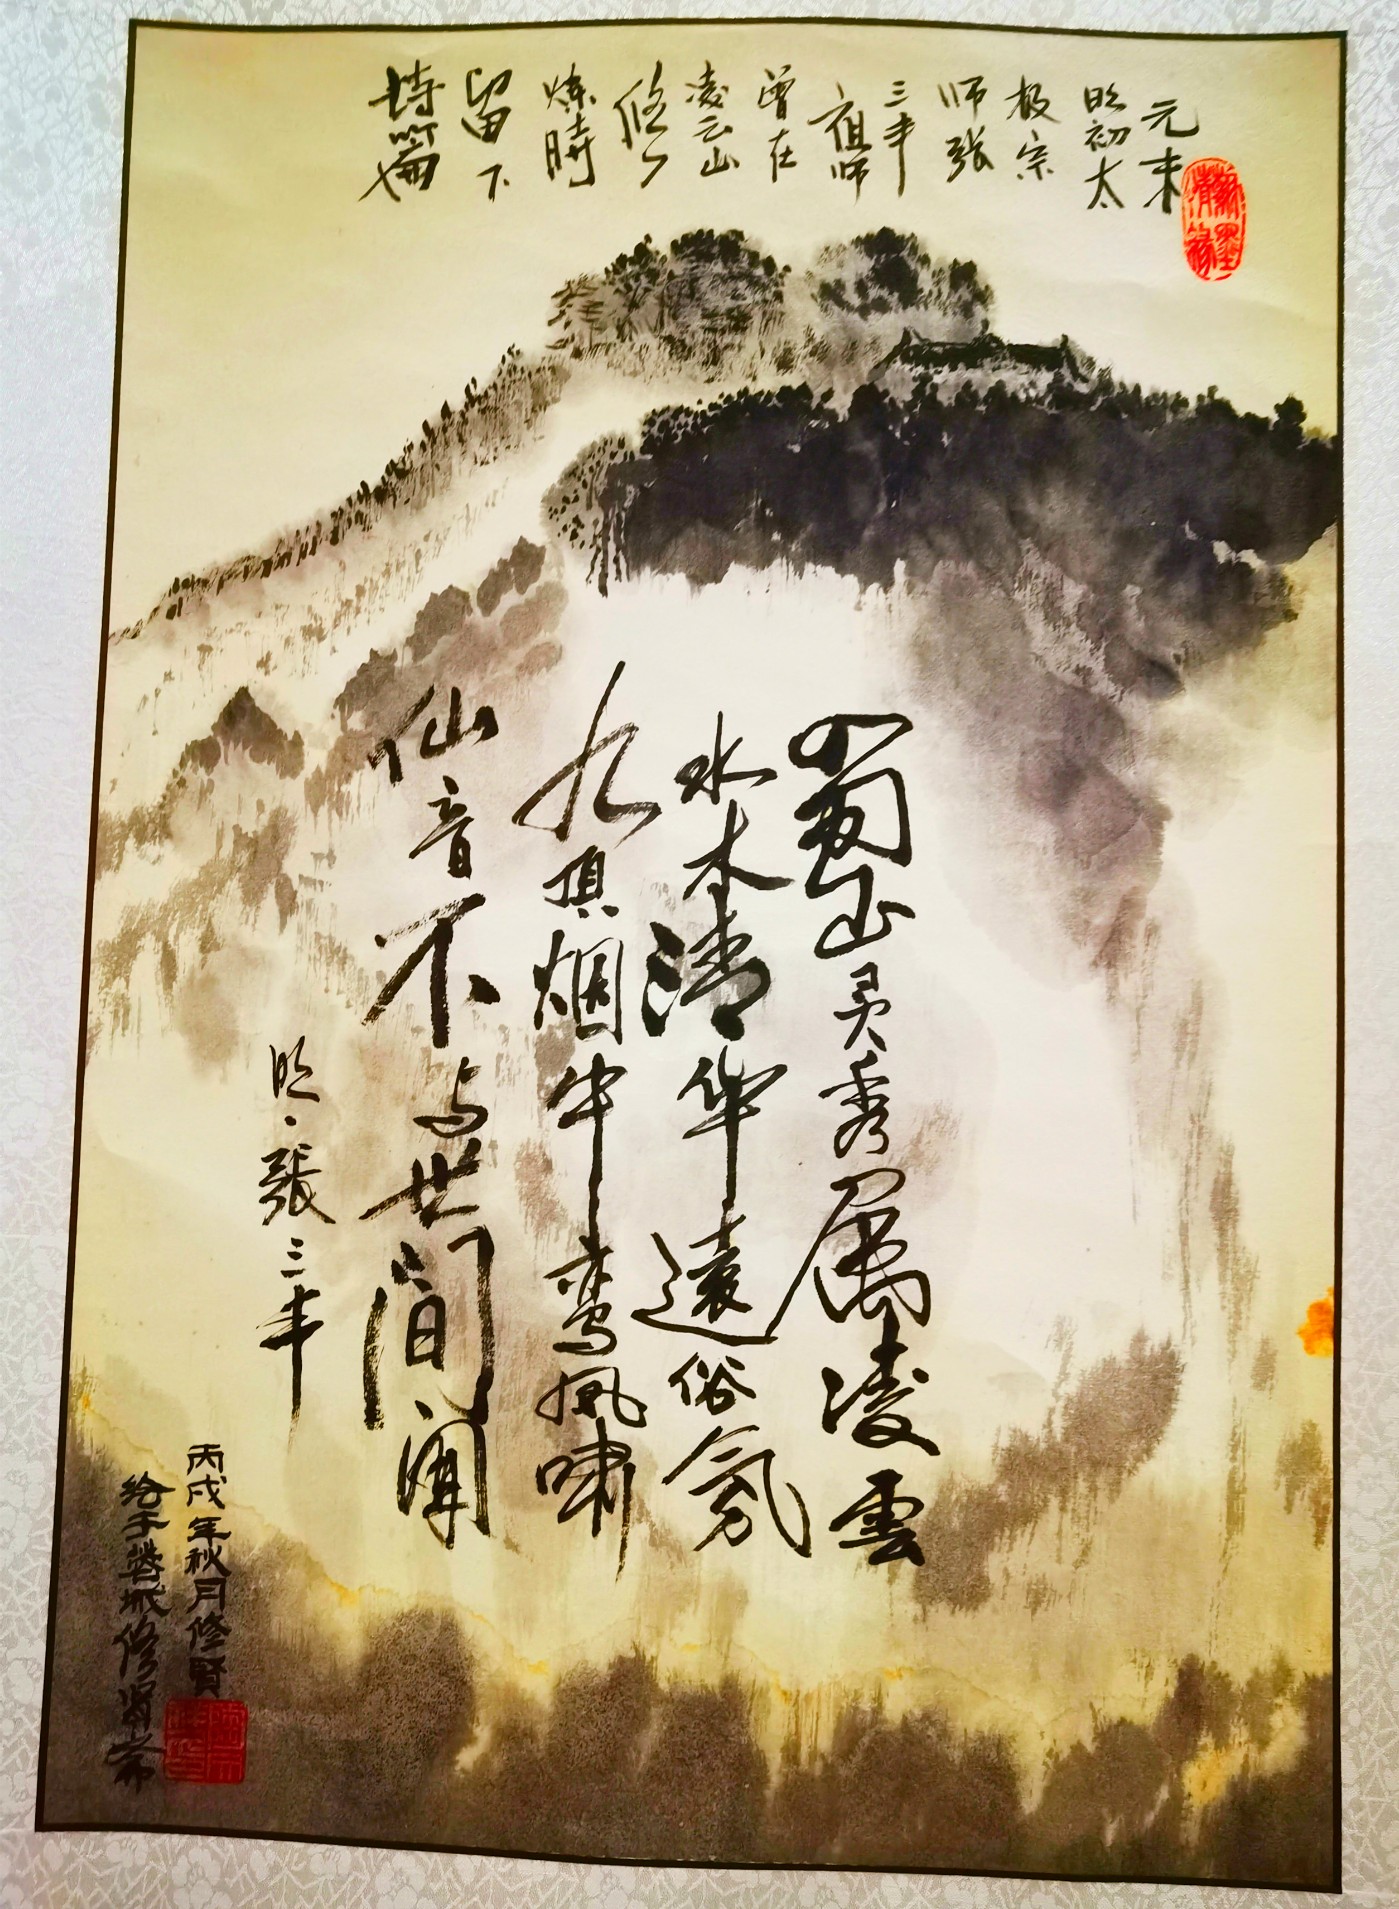 元末
明初太
极宗
师張
三丰
祖师
曾在
凌云山
修
炼時
留下
诗篇
翰墨情緣
蜀山灵秀属凌雲
水木清华遠俗氛
九顶烟中鸾凤啸
仙音不与世间闻
明·張三丰
丙戌年秋月修賢
绘于蓉城修